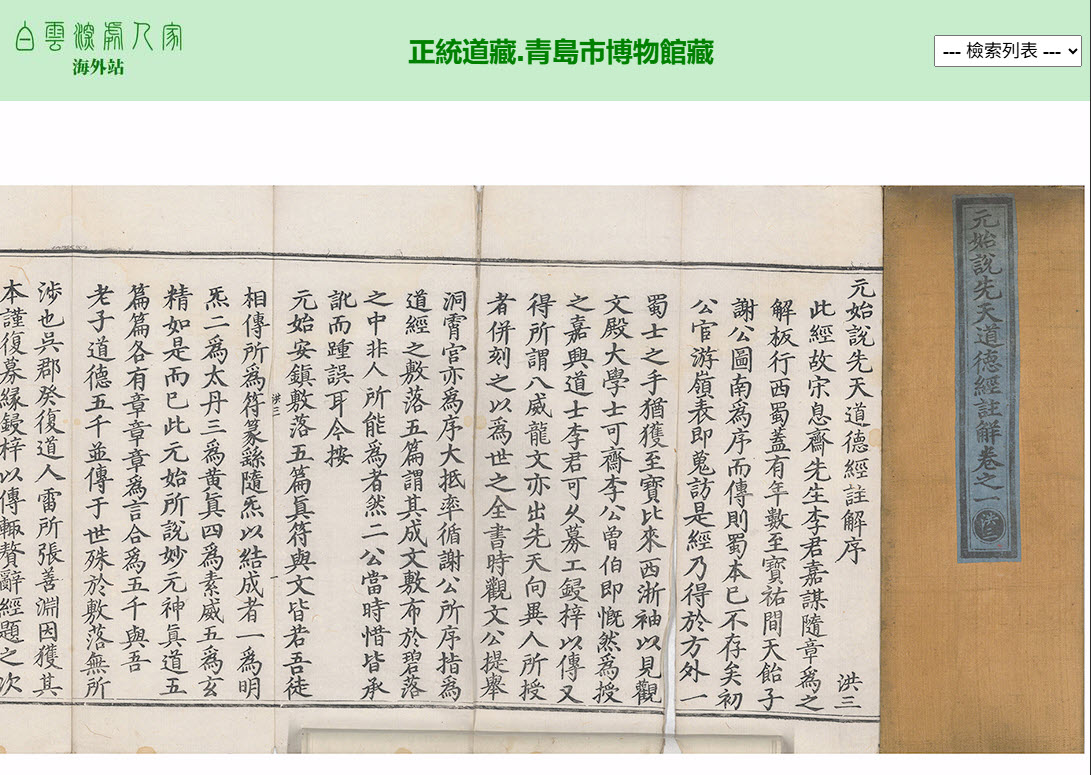 白雲深處人家
海外站
正統道藏.青島市博物館藏
--- 檢索列表 ---
元始說先天道德經註解卷之一
洪三
元始說先天道德經註解序 洪三
此經故宋息齋先生李君嘉謀隨章為之
解板行西蜀蓋有年數至寶祐間天飴子
謝公圖南為序而傳則蜀本已不存矣初
公官游嶺表即蒐訪是經乃得於方外一
蜀士之手猶獲至寶比來西浙袖以見觀
文殿大學士可齋李公曾伯即慨然為授
之嘉興道士李君可久募工鋟梓以傳又
得所謂八威龍文亦出先天向異人所授
者併刻之以為世之全書時觀文公提舉
洞霄宮亦為序大抵率循謝公所序指為
道經之敷落五篇謂其成文敷布於碧落
之中非人所能為者然二公當時惜皆承
訛而踵誤耳今按
元始安鎮敷落五篇真符與文皆若吾徒
相傳所為符篆繇隨炁以結成者一為明
洪三
炁二為太丹三為黃真四為素威五為玄
精如是而已此元始所說妙元神真道五
篇篇各有章章章為言合為五千與吾
老子道德五千並傳于世殊於敷落無所
涉也吳郡癸復道人雷所張善淵因獲其
本謹復募緣鋟梓以傳輒贅辭經題之次